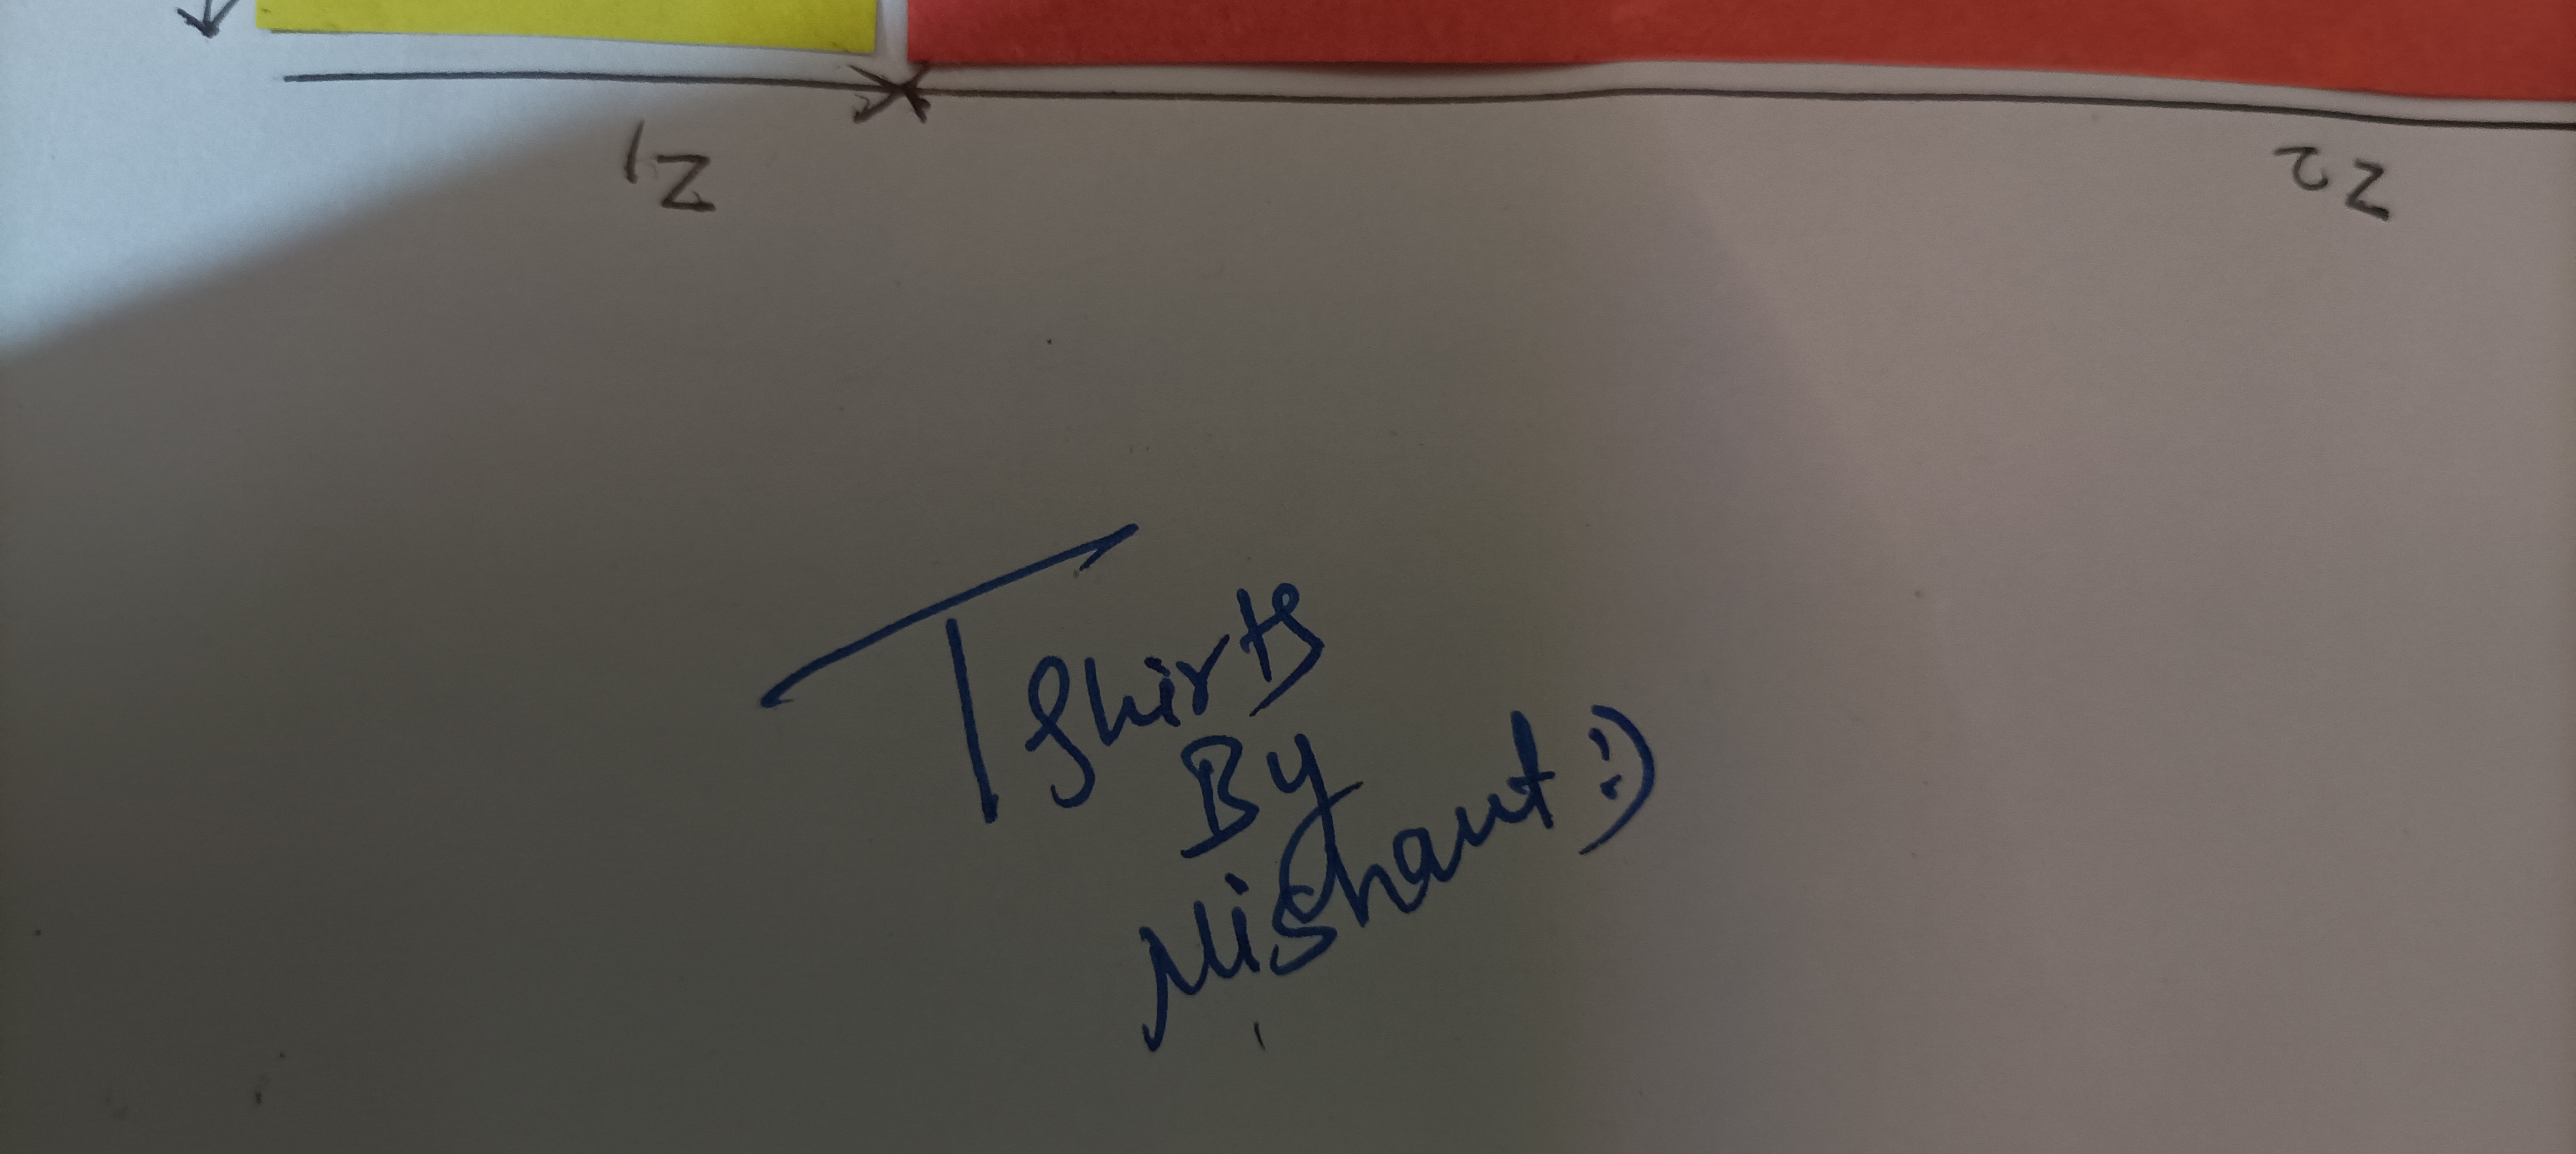 Z1
Z2
Tshirts
By
Nishant :)